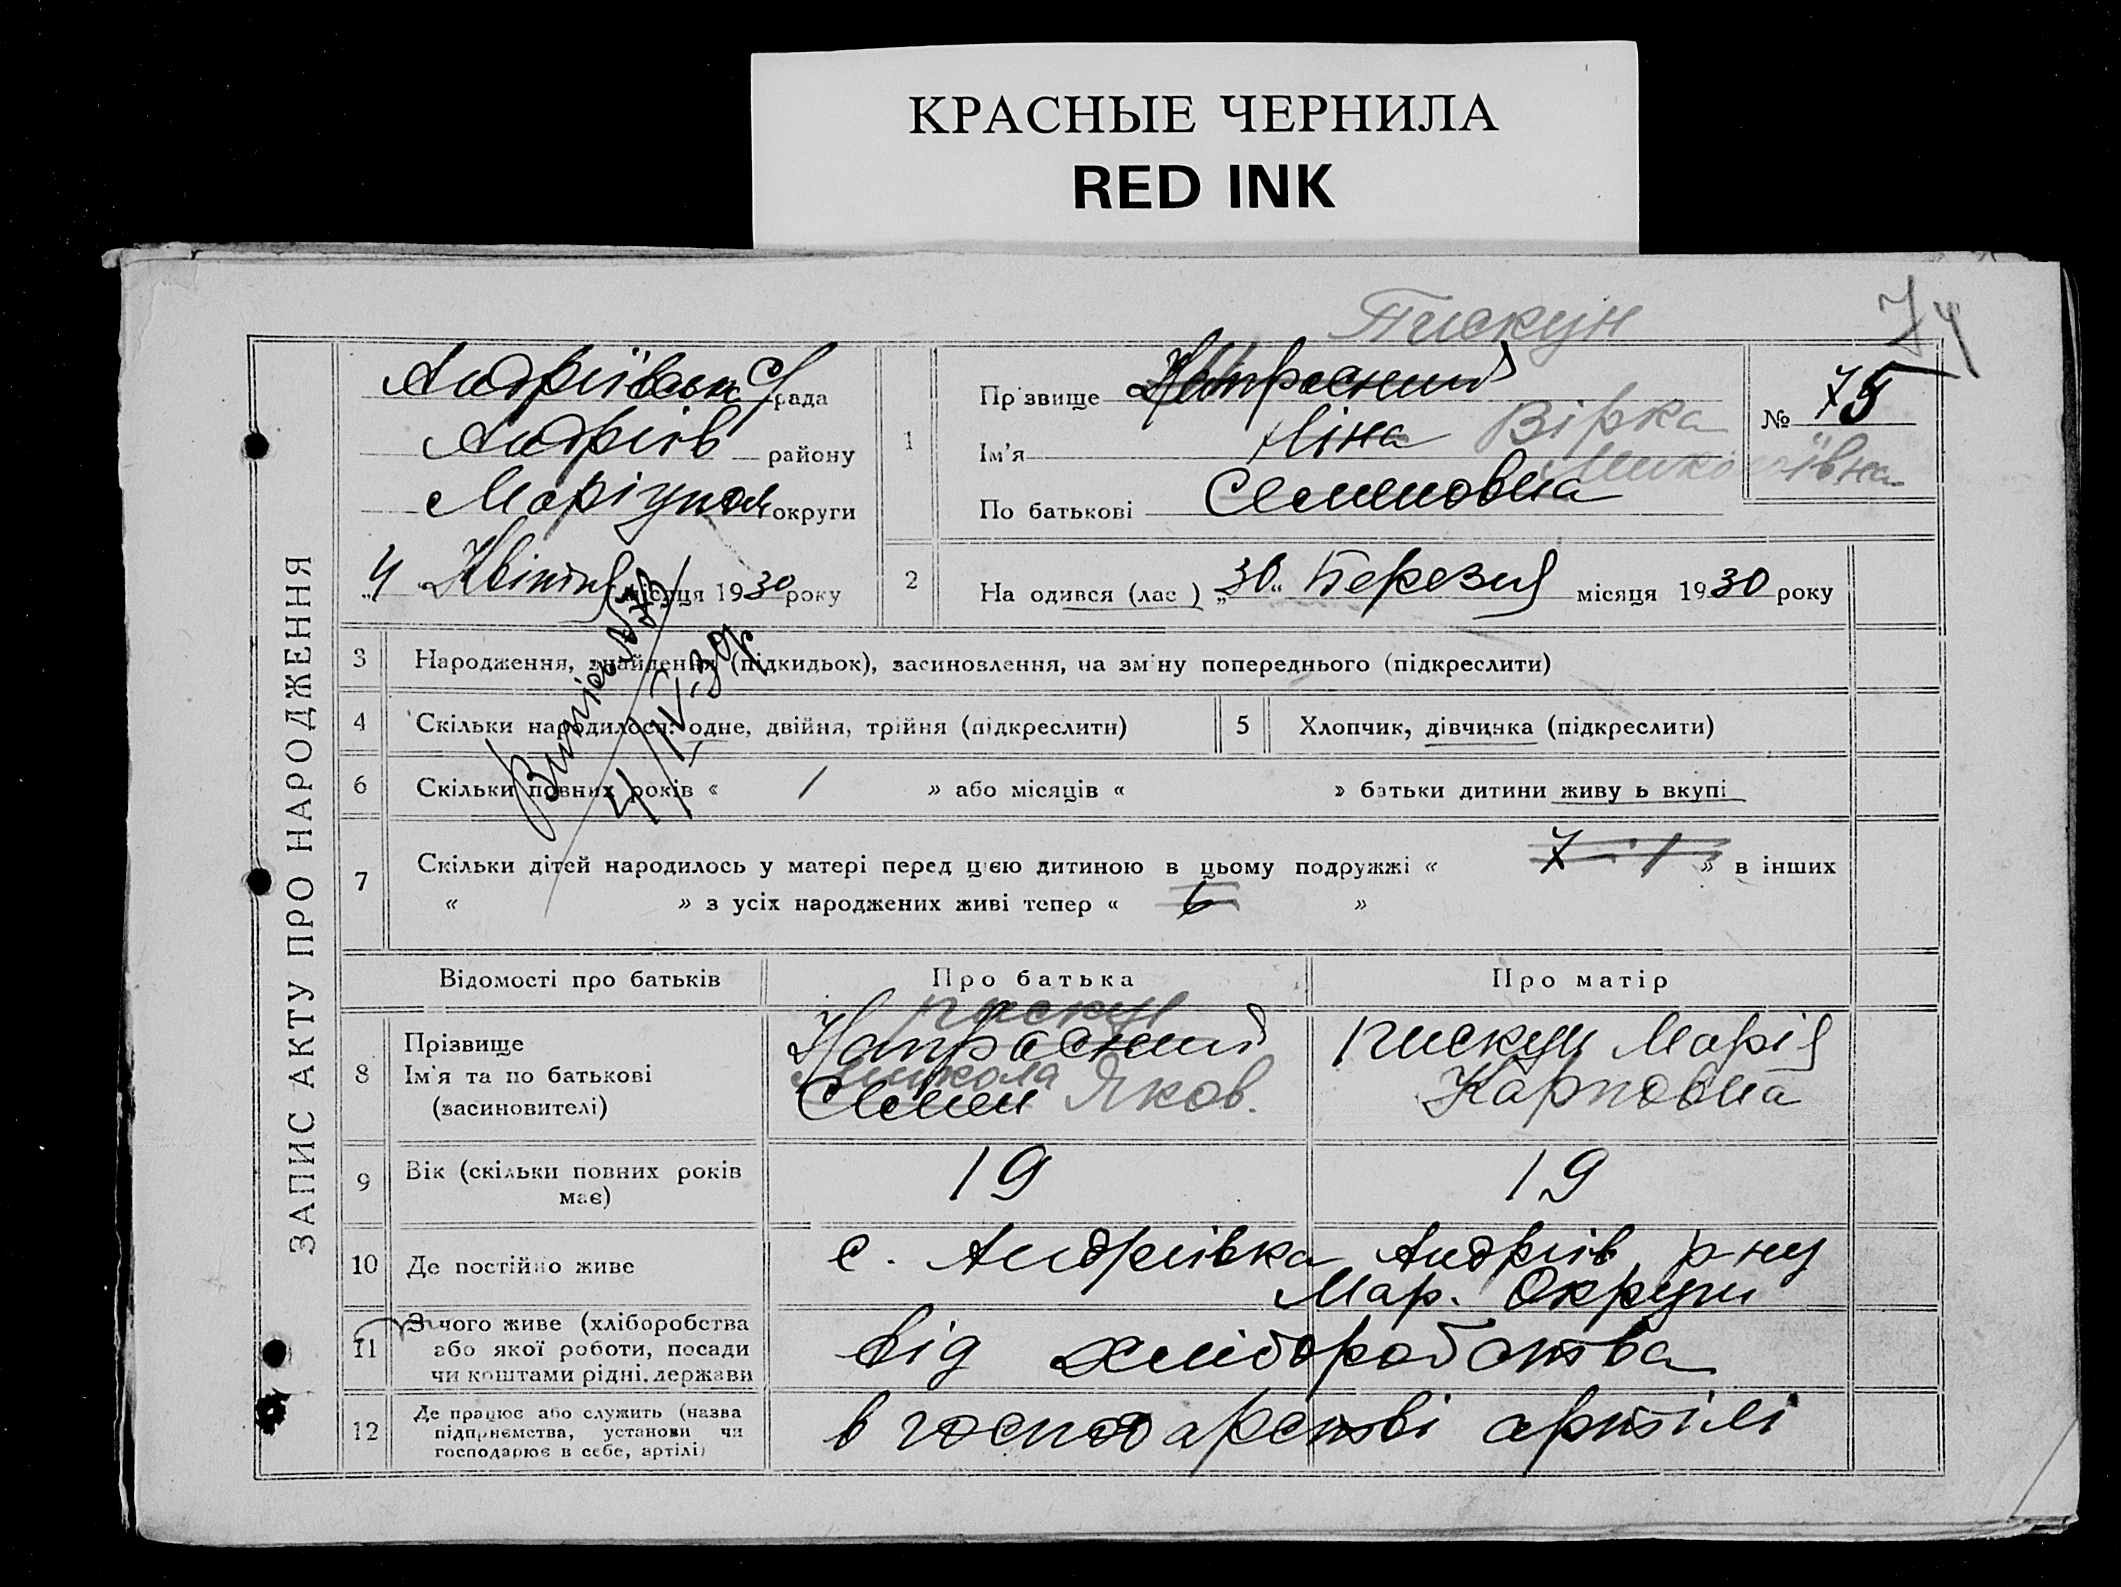 КРАСНЫЕ ЧЕРНИЛА
RED INK
Пискун
74
ЗАПИС АКТУ ПРО НАРОДЖЕННЯ
Андріївська С/рада
Андріїв району
Маріупол округи
„4" Квітня місяця 1930 року
1
Прізвище Напрасний
Ім'я Ліна Вірка
По батькові Семеновна Миколаївна
№ 75
2
На одився (лас ) „30" Березня місяця 1930 року
3 Народження, знайдення (підкидьок), засиновлення, на зміну попереднього (підкреслити)
4 Скільки народилося: одне, двійня, трійня (підкреслити)
5 Хлопчик, дівчинка (підкреслити)
6 Скільки повних років « / » або місяців « » батьки дитини живу ь вкупі
4/IV-30р
7 Скільки дітей народилось у матері перед цією дитиною в цьому подружжі « » в інших
« » з усіх народжених живі тепер « 6 »
Відомості про батьків Про батька Про матір
8 Прізвище
Ім'я та по батькові
(засиновителі)
Пискун
Напрасний
Микола
Семен Яков.
Пискун Марія
Карповна
9 Вік (скільки повних років
має)
19 19
10 Де постійно живе
с. Андріївка Андріїв р-ну
Мар. Округи
11 З чого живе (хліборобства
або якої роботи, посади
чи коштами рідні, держави
від хліборобства
12 Де працює або служить (назва
підприємства, установи чи
господарює в себе, артілі)
в господарстві артілі